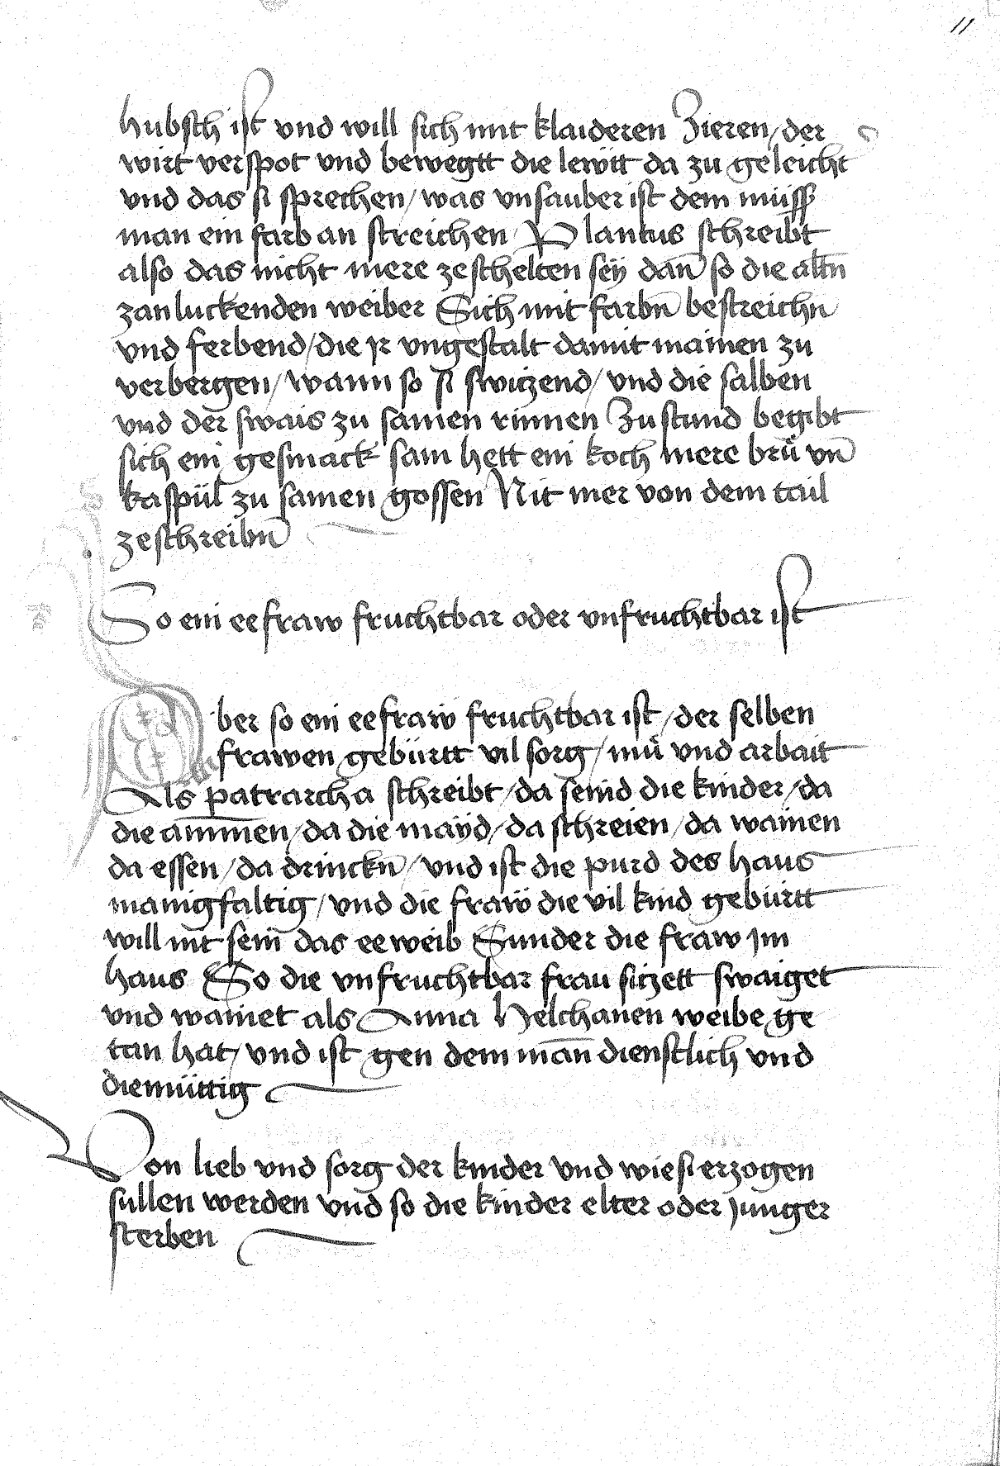 11
hubsch ist vnd will sich mit klaideren Zieren / der
wirt verspot vnd bewegtt die lewtt da zu geleicht
vnd das si sprechen / was vnsauber ist dem müss
man ein farb an streichen / Plantus schreibt
also das nicht mere zeschelten seÿ dan̄ so die altn̄
zanluckenden weiber Sich mit farbn̄ bestreichn̄
vnd ferbend / die ir vngestalt damit mainen zu
verbergen / wann so si switzend / vnd die salben
vnd der swais zu samen rinnen Zustund begibt
sich ein gesmack sam hett ein koch mere brǖ vn̄
kaspül zu samen gossen Nit mer von dem tail
zeschreibn̄
So ein eefraw fruchtbar oder vnfruchtbar ist
Aber so ein eefraw fruchtbar ist / der selben
frawen gebürtt vil sorg / mü vnd arbait
Als patrarcha schreibt / da seind die kinder / da
die am̄men / da die maÿd / da schreien / da wainen
da essen / da drinckn̄ / vnd ist die purd des haus
manigfaltig / vnd die fraẅ die vil kind gebürtt
will nit sein das eeweib Sunder die fraw im
haus So die vnfruchtbar frau sitzett swaiget
vnd wainet als Anna Helchanen weibe ge
tan hat / vnd ist gen dem man̄ dienstlich vnd
diemüttig
Von lieb vnd sorg der kinder vnd wie si erzogen
sullen werden vnd so die kinder elter oder junger
sterben